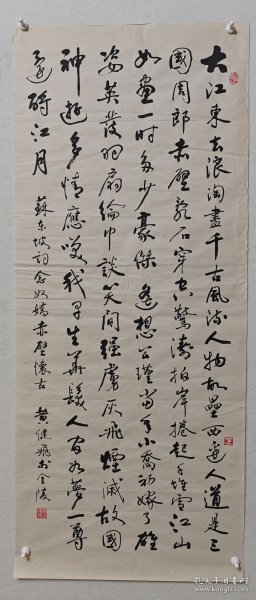 大江東去浪淘盡千古風流人物故壘西邊人道是三
國周郎赤壁亂石穿空驚濤拍岸捲起千堆雪江山
如畫一時多少豪傑遙想公瑾當年小喬初嫁了雄
姿英發羽扇綸巾談笑間強虜灰飛煙滅故國
神遊多情應笑我早生華髮人間如夢一尊
還酹江月
蘇東坡詞念奴嬌赤壁懷古 黄健飛书金陵
孔夫子旧书网